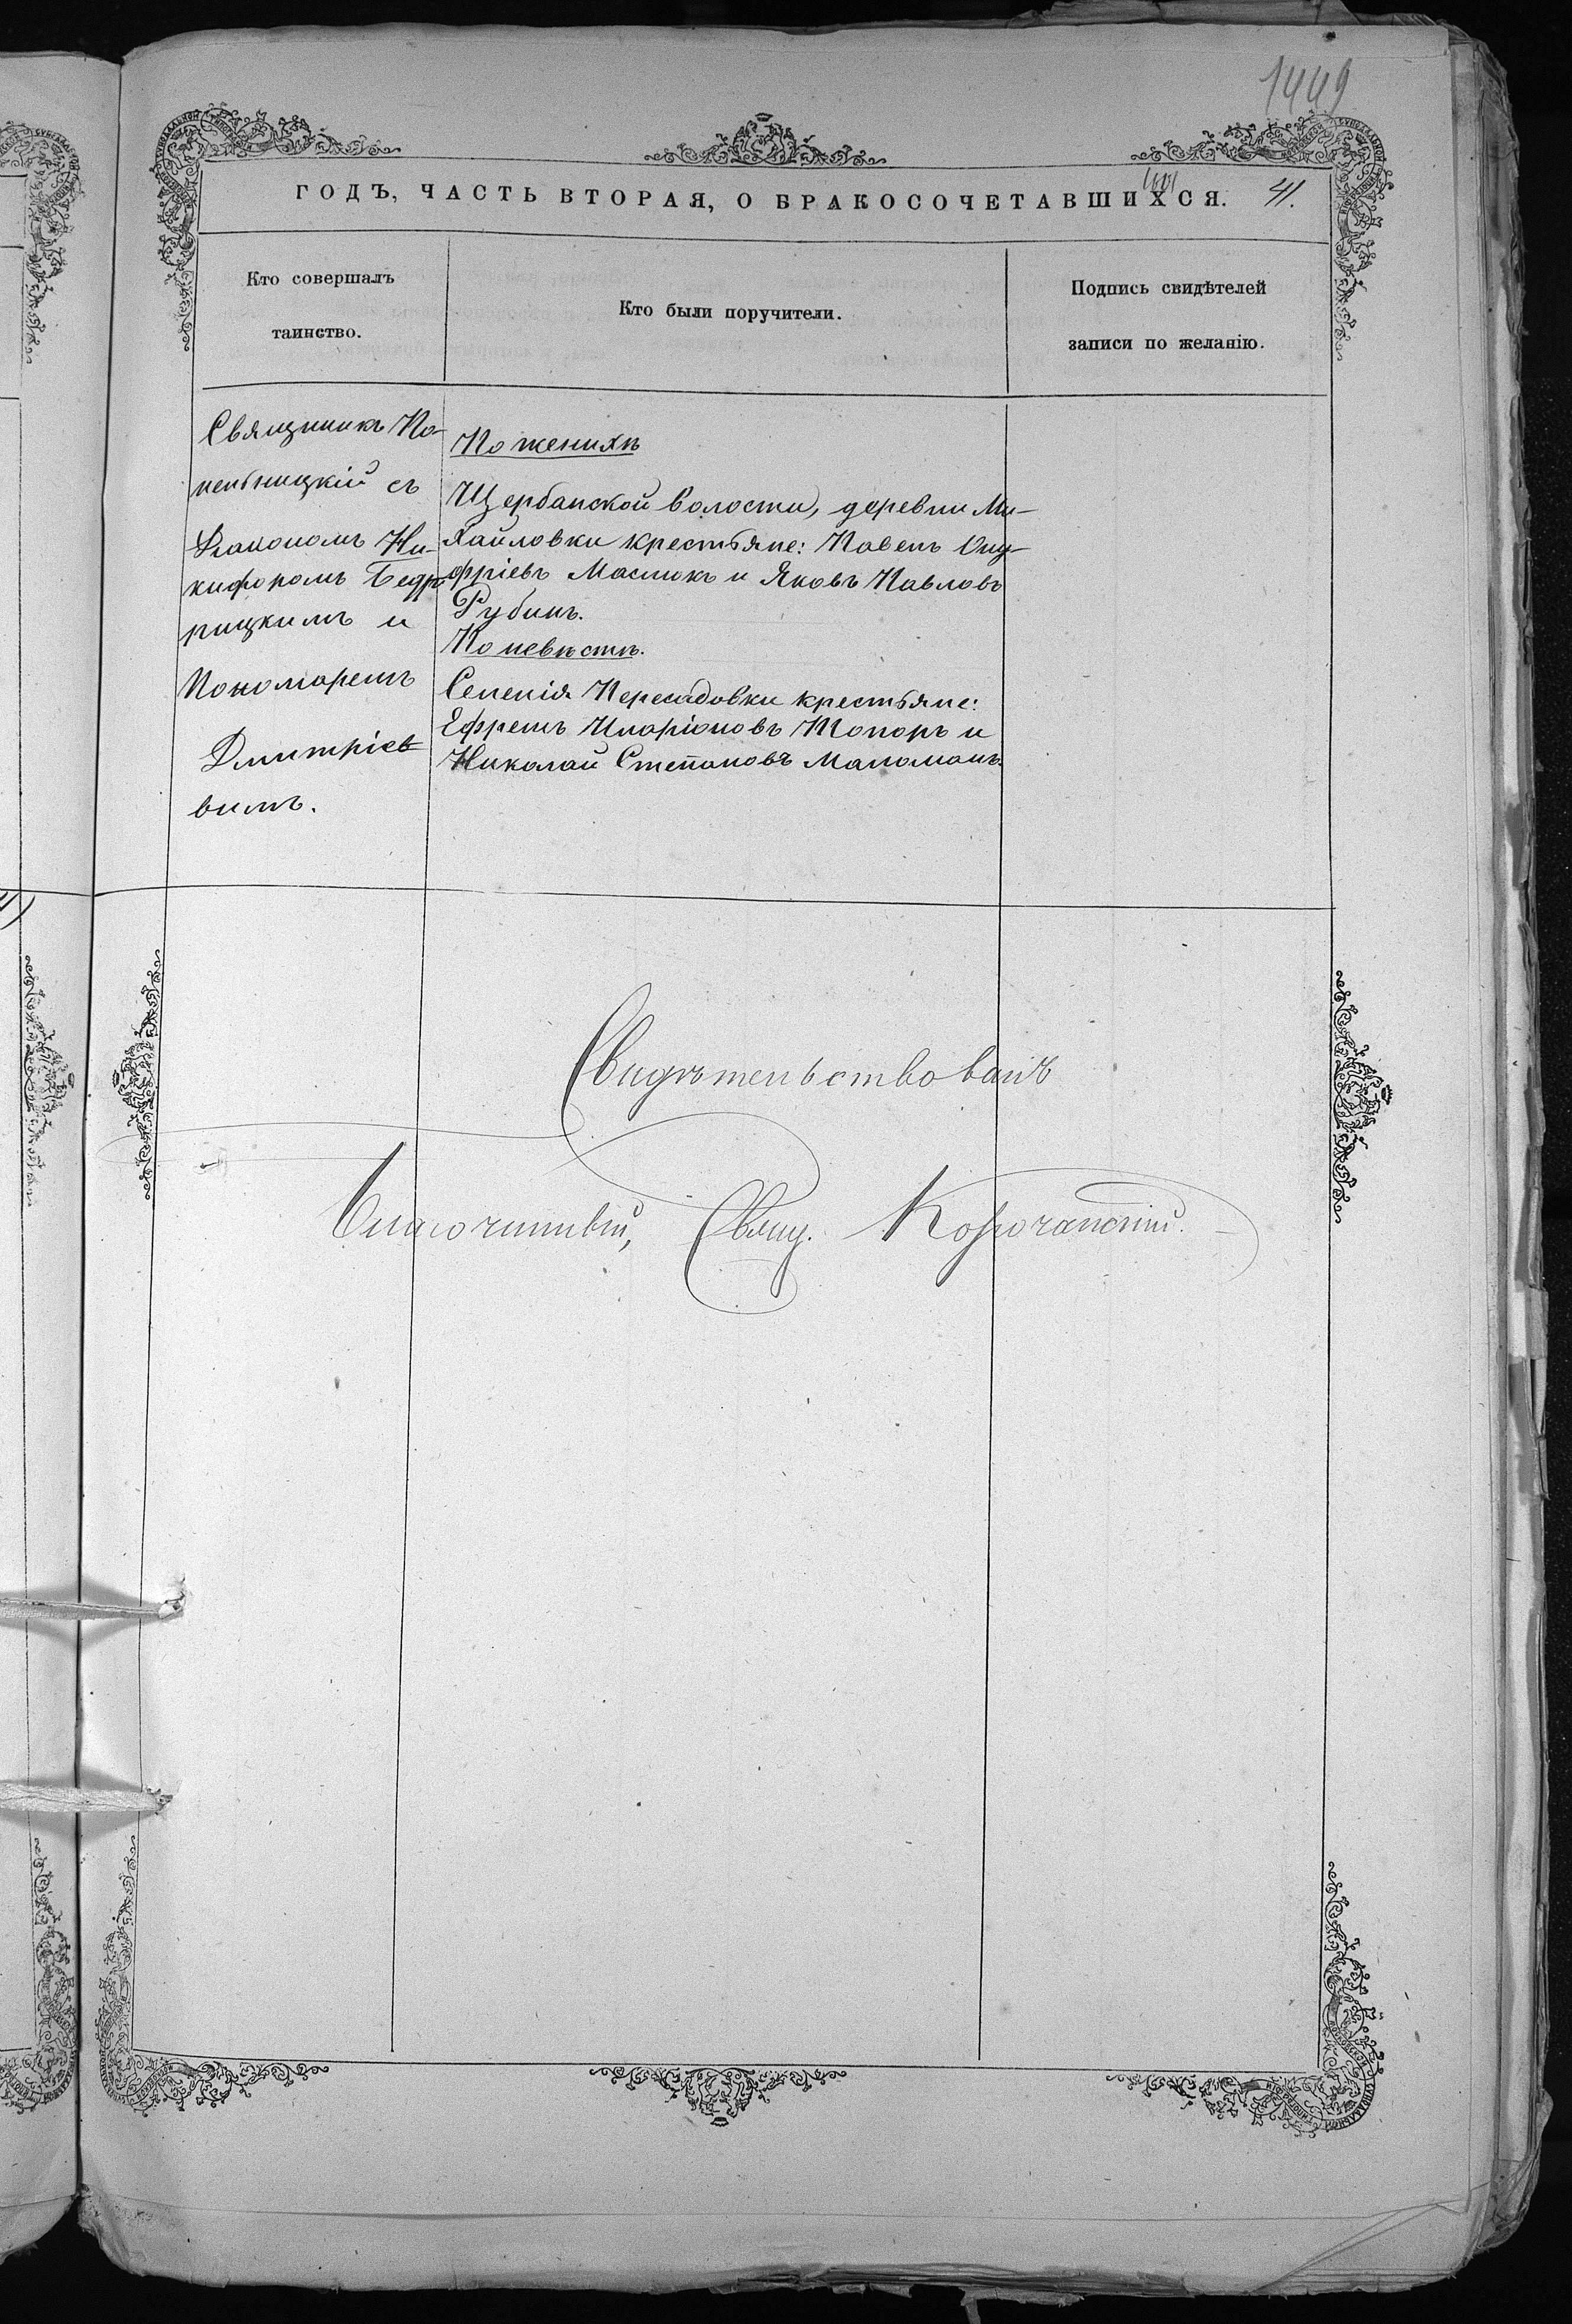 1449
ГОДЪ, ЧАСТЬ ВТОРАЯ, О БРАКОСОЧЕТАВШИХСЯ. 41.
Кто совершалъ
таинство.
Кто были поручители.
Подпись свидѣтелей
записи по желанію.
Священникъ Ко-
пельницкій съ
Діакономъ Ни-
кифоромъ Бедр-
рицкимъ и
Пономаремъ
Дмитріев
вимъ.
По женихѣ
Щербанской волости, деревни Ми-
хайловки крестьяне: Павелъ Ону-
фріевъ Маслюкъ и Яковъ Павловъ
Рубинъ.
По невѣстѣ.
Селенія Пересадовки крестьяне:
Ефремъ Иларіоновъ Топоръ и
Николай Степановъ Маломанъ
Свидѣтельствовалъ
Благочинный, Свящ. Корочанскій.